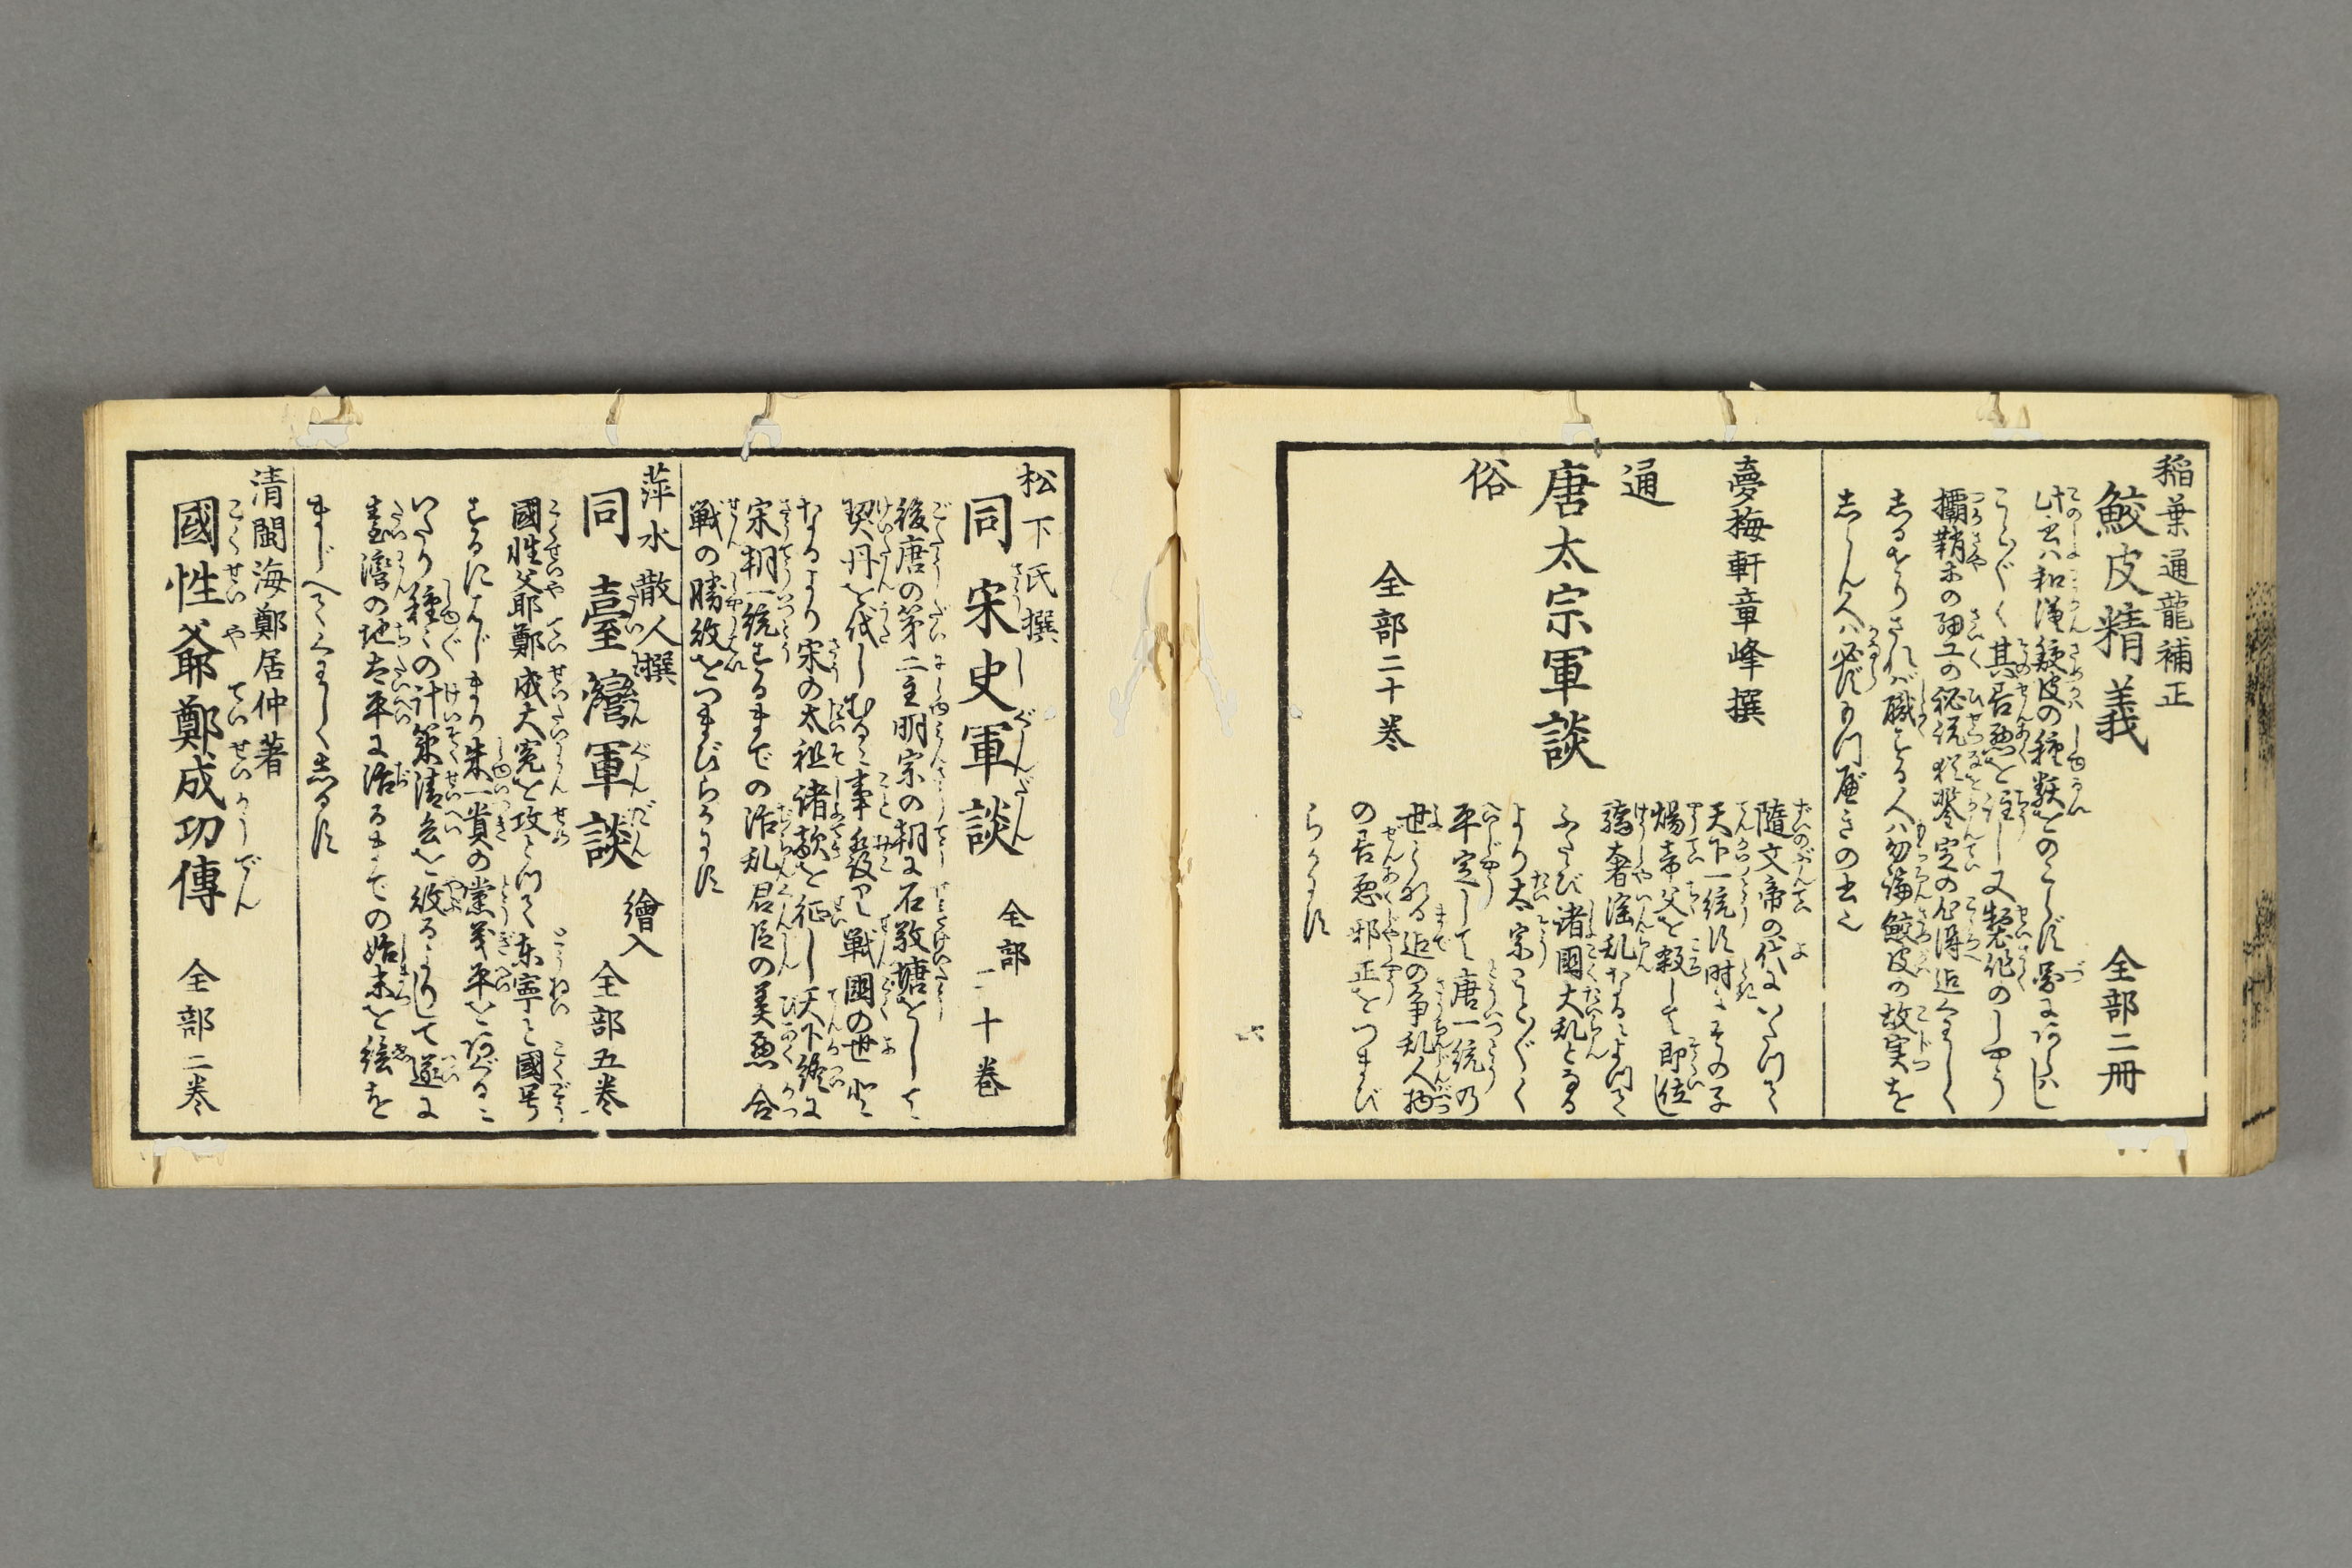 稲葉通龍補正
鮫皮精義
全部二冊
此書ハ和漢鮫皮の種類をのこらず図にあらハし
こと〴〵く其善悪を註し又製作のしやう
欛鞘等の細工の秘説鑒定の心得迄くわしく
しるせりされバ職とする人ハ勿論鮫皮の故実を
しらん人ハ必ずもつべきの書也
夢梅軒章峰撰
通俗
唐太宗軍談
全部二十巻
隨文帝の代にいたつて
天下一統す時にその子
煬帝父を殺して即位し
驕奢淫乱なるによつて
ふたゝび諸國大乱となる
より太宗こと〴〵く
平定して唐一統の
世となる迄の争乱人物
の善悪邪正をつまび
らかにす
六
松下氏撰
同宋史軍談
さうしぐんだん
全部二十巻
後唐の第二主明宗の朝に石敬塘をして
契丹を伐しむる事発り戦國の世と
なるより宋の太祖諸敵を征し天下終に
宋朝一統するまでの治乱君臣の美悪合
戦の勝敗をつまびらかにす
萍水散人撰
同臺灣軍談
たいわんぐんだん
繪入
全部五巻
國性爺鄭成大寃を攻とつて東寧と國号
するにはじまり朱一貴の黨義平を
いたり種々の計策清兵を敗るよりして遂に
臺灣の地太平に治るまでの始末を絵を
まじへてくわしくしるす
清閩海鄭居仲著
國性爺鄭成功傳
こくせいやていせいかうでん
全部二巻